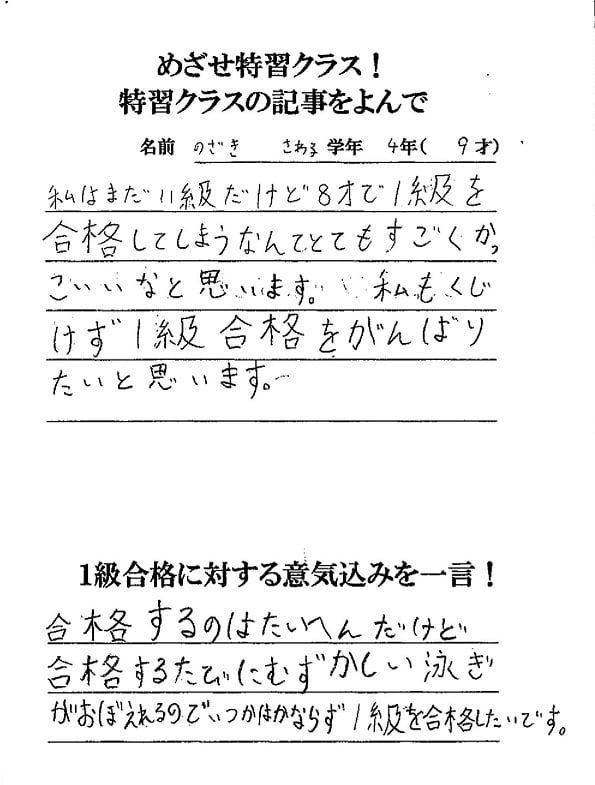 めざせ特習クラス！
特習クラスの記事をよんで
名前 のざき さわる 学年 4年( 9才)
私はまだ11級だけど8才で1級を
合格してしまうなんてとてもすごくかっ
こいいなと思います。 私もくじ
けず1級合格をがんばり
たいと思います。
1級合格に対する意気込みを一言！
合格するのはたいへんだけど
合格するたびにむずかしい泳ぎ
がおぼえれるのでいつかはかならず1級を合格したいです。